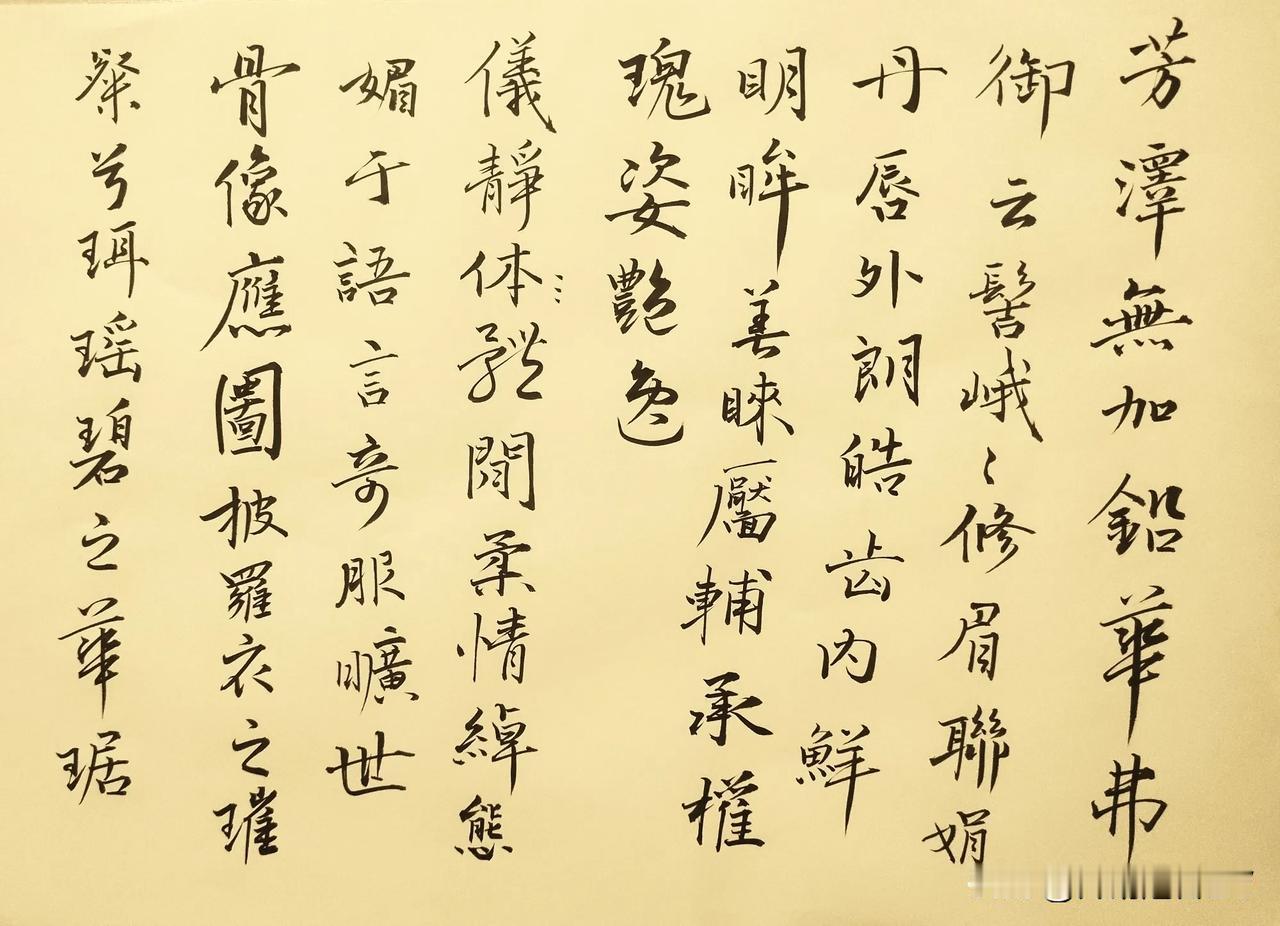 芳澤無加鉛華弗
御云髻峨々修眉聯娟
丹唇外朗皓齿内鮮
明眸善睐靨輔承權
瑰姿艷逸
儀靜体軆閒柔情綽態
媚于語言奇服曠世
骨像應圖披羅衣之璀
粲兮珥瑶碧之華琚